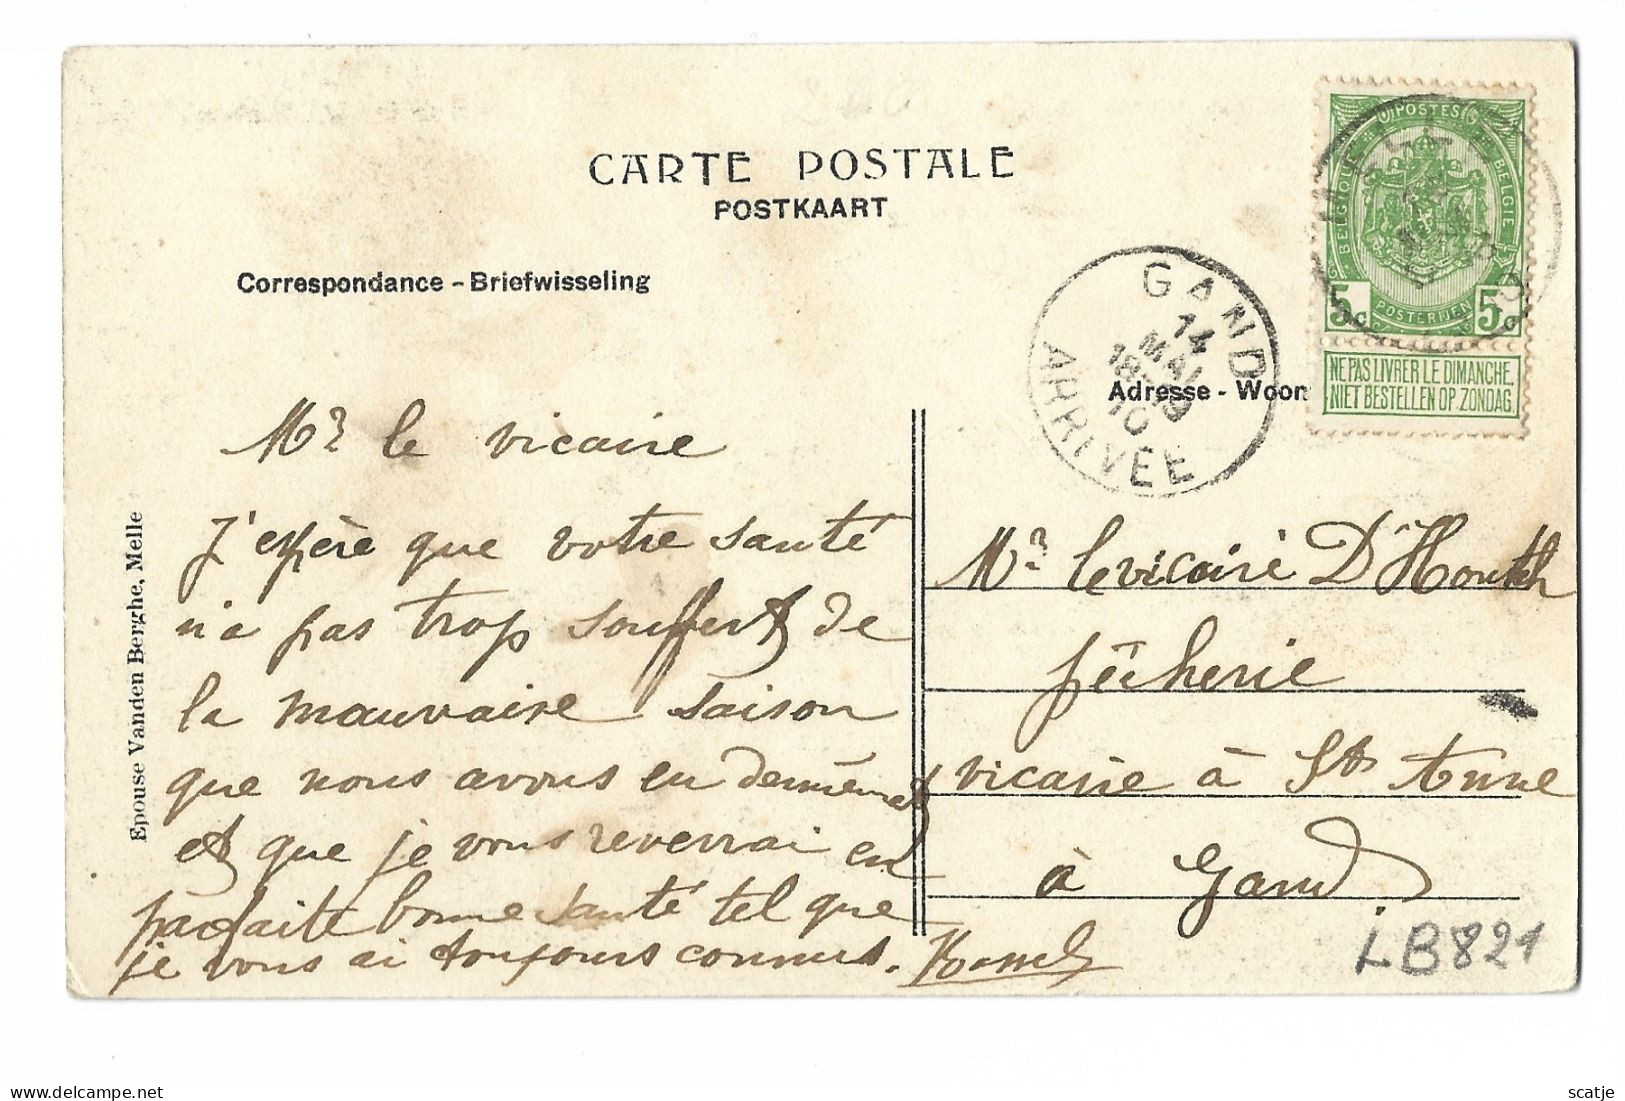 CARTE POSTALE
POSTKAART
Correspondance - Briefwisseling
POSTES
BELGIQUE
BELGIE
POSTERIJEN
5c 5c
NE PAS LIVRER LE DIMANCHE.
NIET BESTELLEN OP ZONDAG.
GAND
14
MAI
10
ARRIVÉE
Adresse - Woon
Mr le vicaire
J'espère que votre santé
n'a pas trop souffert de
la mauvaise saison
que nous avons eu
et que je vous reverrai en
parfaite bonne santé tel que
je vous ai toujours connus.
Mr le vicaire D'
vicaire à Ste Anne
à Gand
LB821
Epouse Vanden Berghe, Melle
scatje